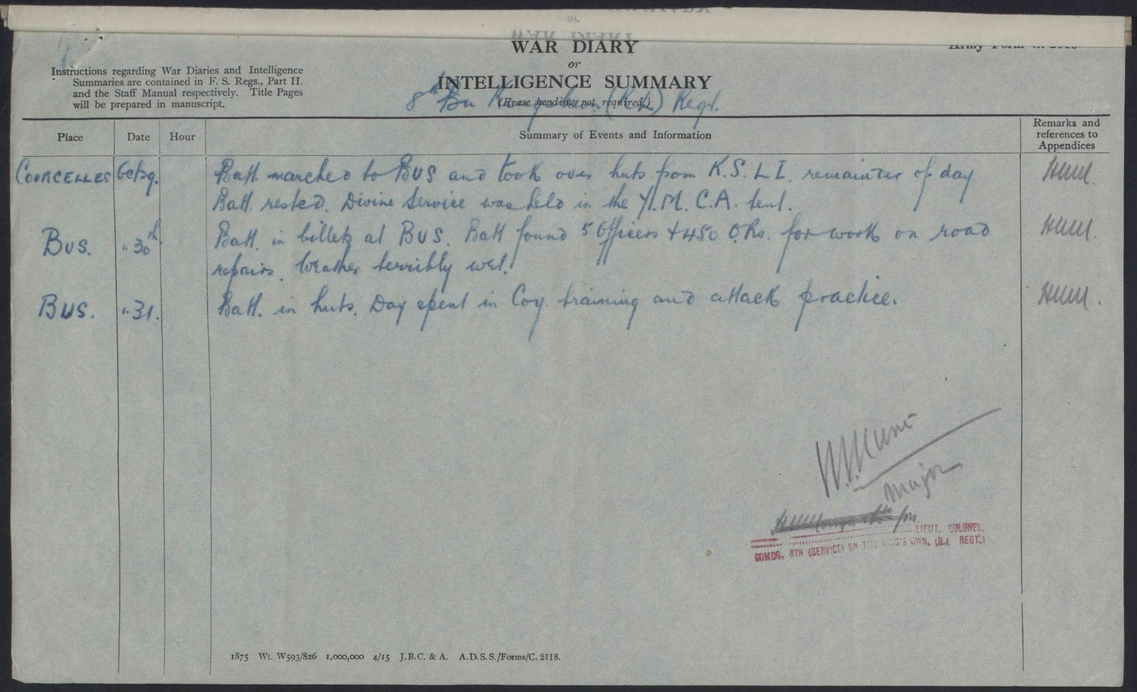 WAR DIARY
or
INTELLIGENCE SUMMARY
(Erase heading not required.)
Instructions regarding War Diaries and Intelligence
Summaries are contained in F. S. Regs., Part II.
and the Staff Manual respectively. Title Pages
will be prepared in manuscript.
8th Bn (R.L) Regt.
Place Date Hour Summary of Events and Information Remarks and references to Appendices
COURCELLES Oct 29. Batt. marched to BUS and took over huts from K.S.L.I. remainder of day
Batt. rested. Divine Service was held in the Y.M.C.A. tent.
BUS. " 30th Batt. in billets at BUS. Batt found 5 Officers + 450 O.Rs. for work on road
repairs. Weather terribly wet.
BUS. " 31. Batt. in huts. Day spent in Coy training and attack practice.
Major
for
LIEUT. COLONEL,
COMDG. 8TH (SERVICE) BN THE KING'S OWN, (R.L. REGT.)
1875 Wt. W593/826 1,000,000 4/15 J.B.C. & A. A.D.S.S./Forms/C. 2118.